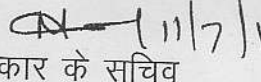 11/7/
कार के सचिव